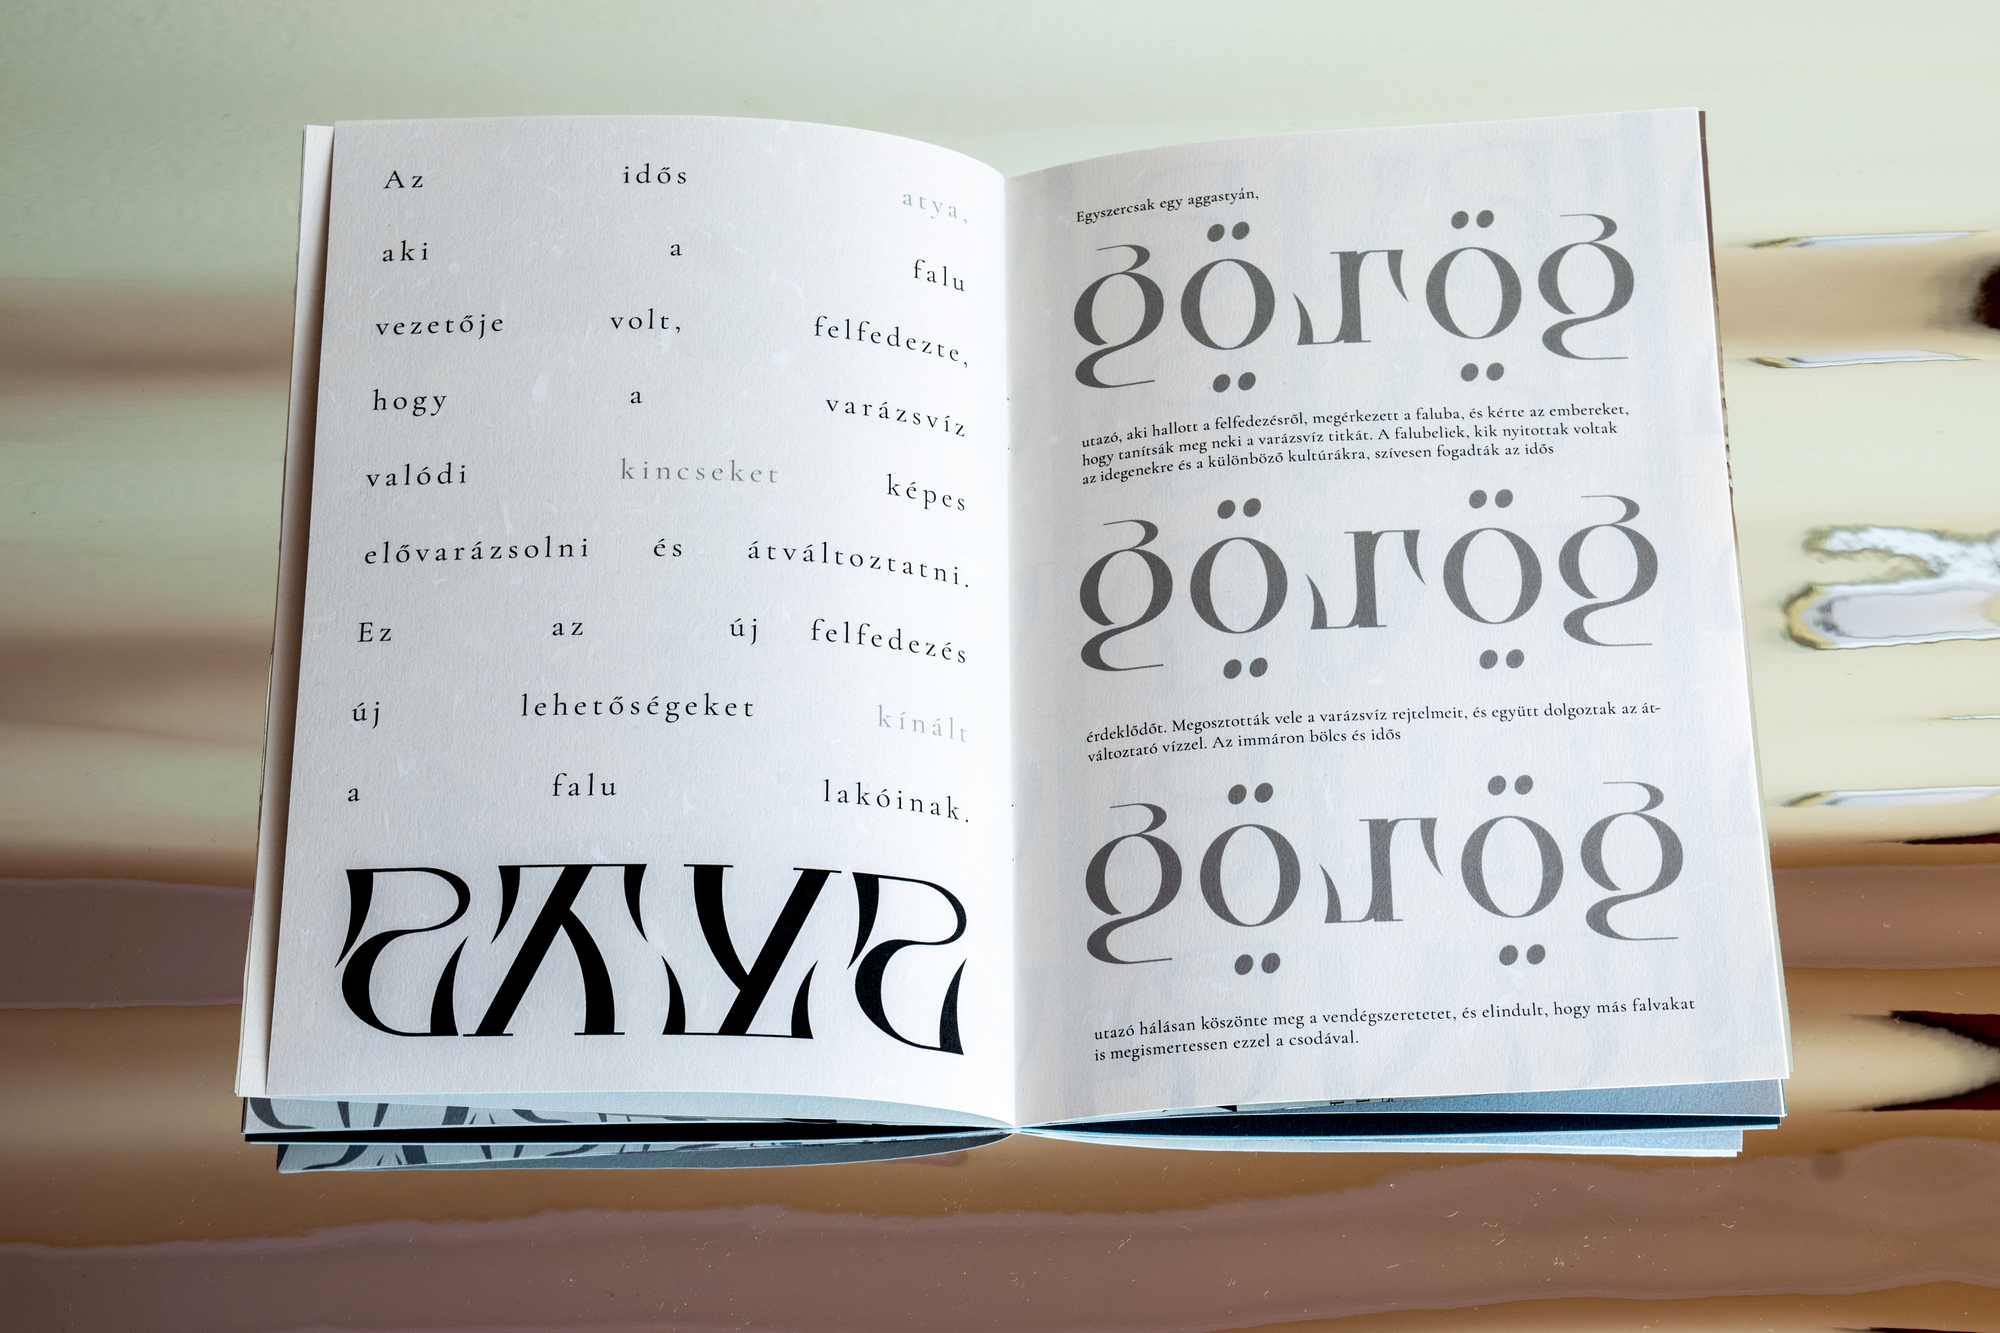 Az idős atya,
aki a falu
vezetője volt, felfedezte,
hogy a varázsvíz
valódi kincseket képes
elővarázsolni és átváltoztatni.
Ez az új felfedezés
új lehetőségeket kínált
a falu lakóinak.
Egyszercsak egy aggastyán,
görög
utazó, aki hallott a felfedezésről, megérkezett a faluba, és kérte az embereket,
hogy tanítsák meg neki a varázsvíz titkát. A falubeliek, kik nyitottak voltak
az idegenekre és a különböző kultúrákra, szívesen fogadták az idős
görög
érdeklődőt. Megosztották vele a varázsvíz rejtelmeit, és együtt dolgoztak az át-
változtató vízzel. Az immáron bölcs és idős
görög
utazó hálásan köszönte meg a vendégszeretetet, és elindult, hogy más falvakat
is megismertessen ezzel a csodával.